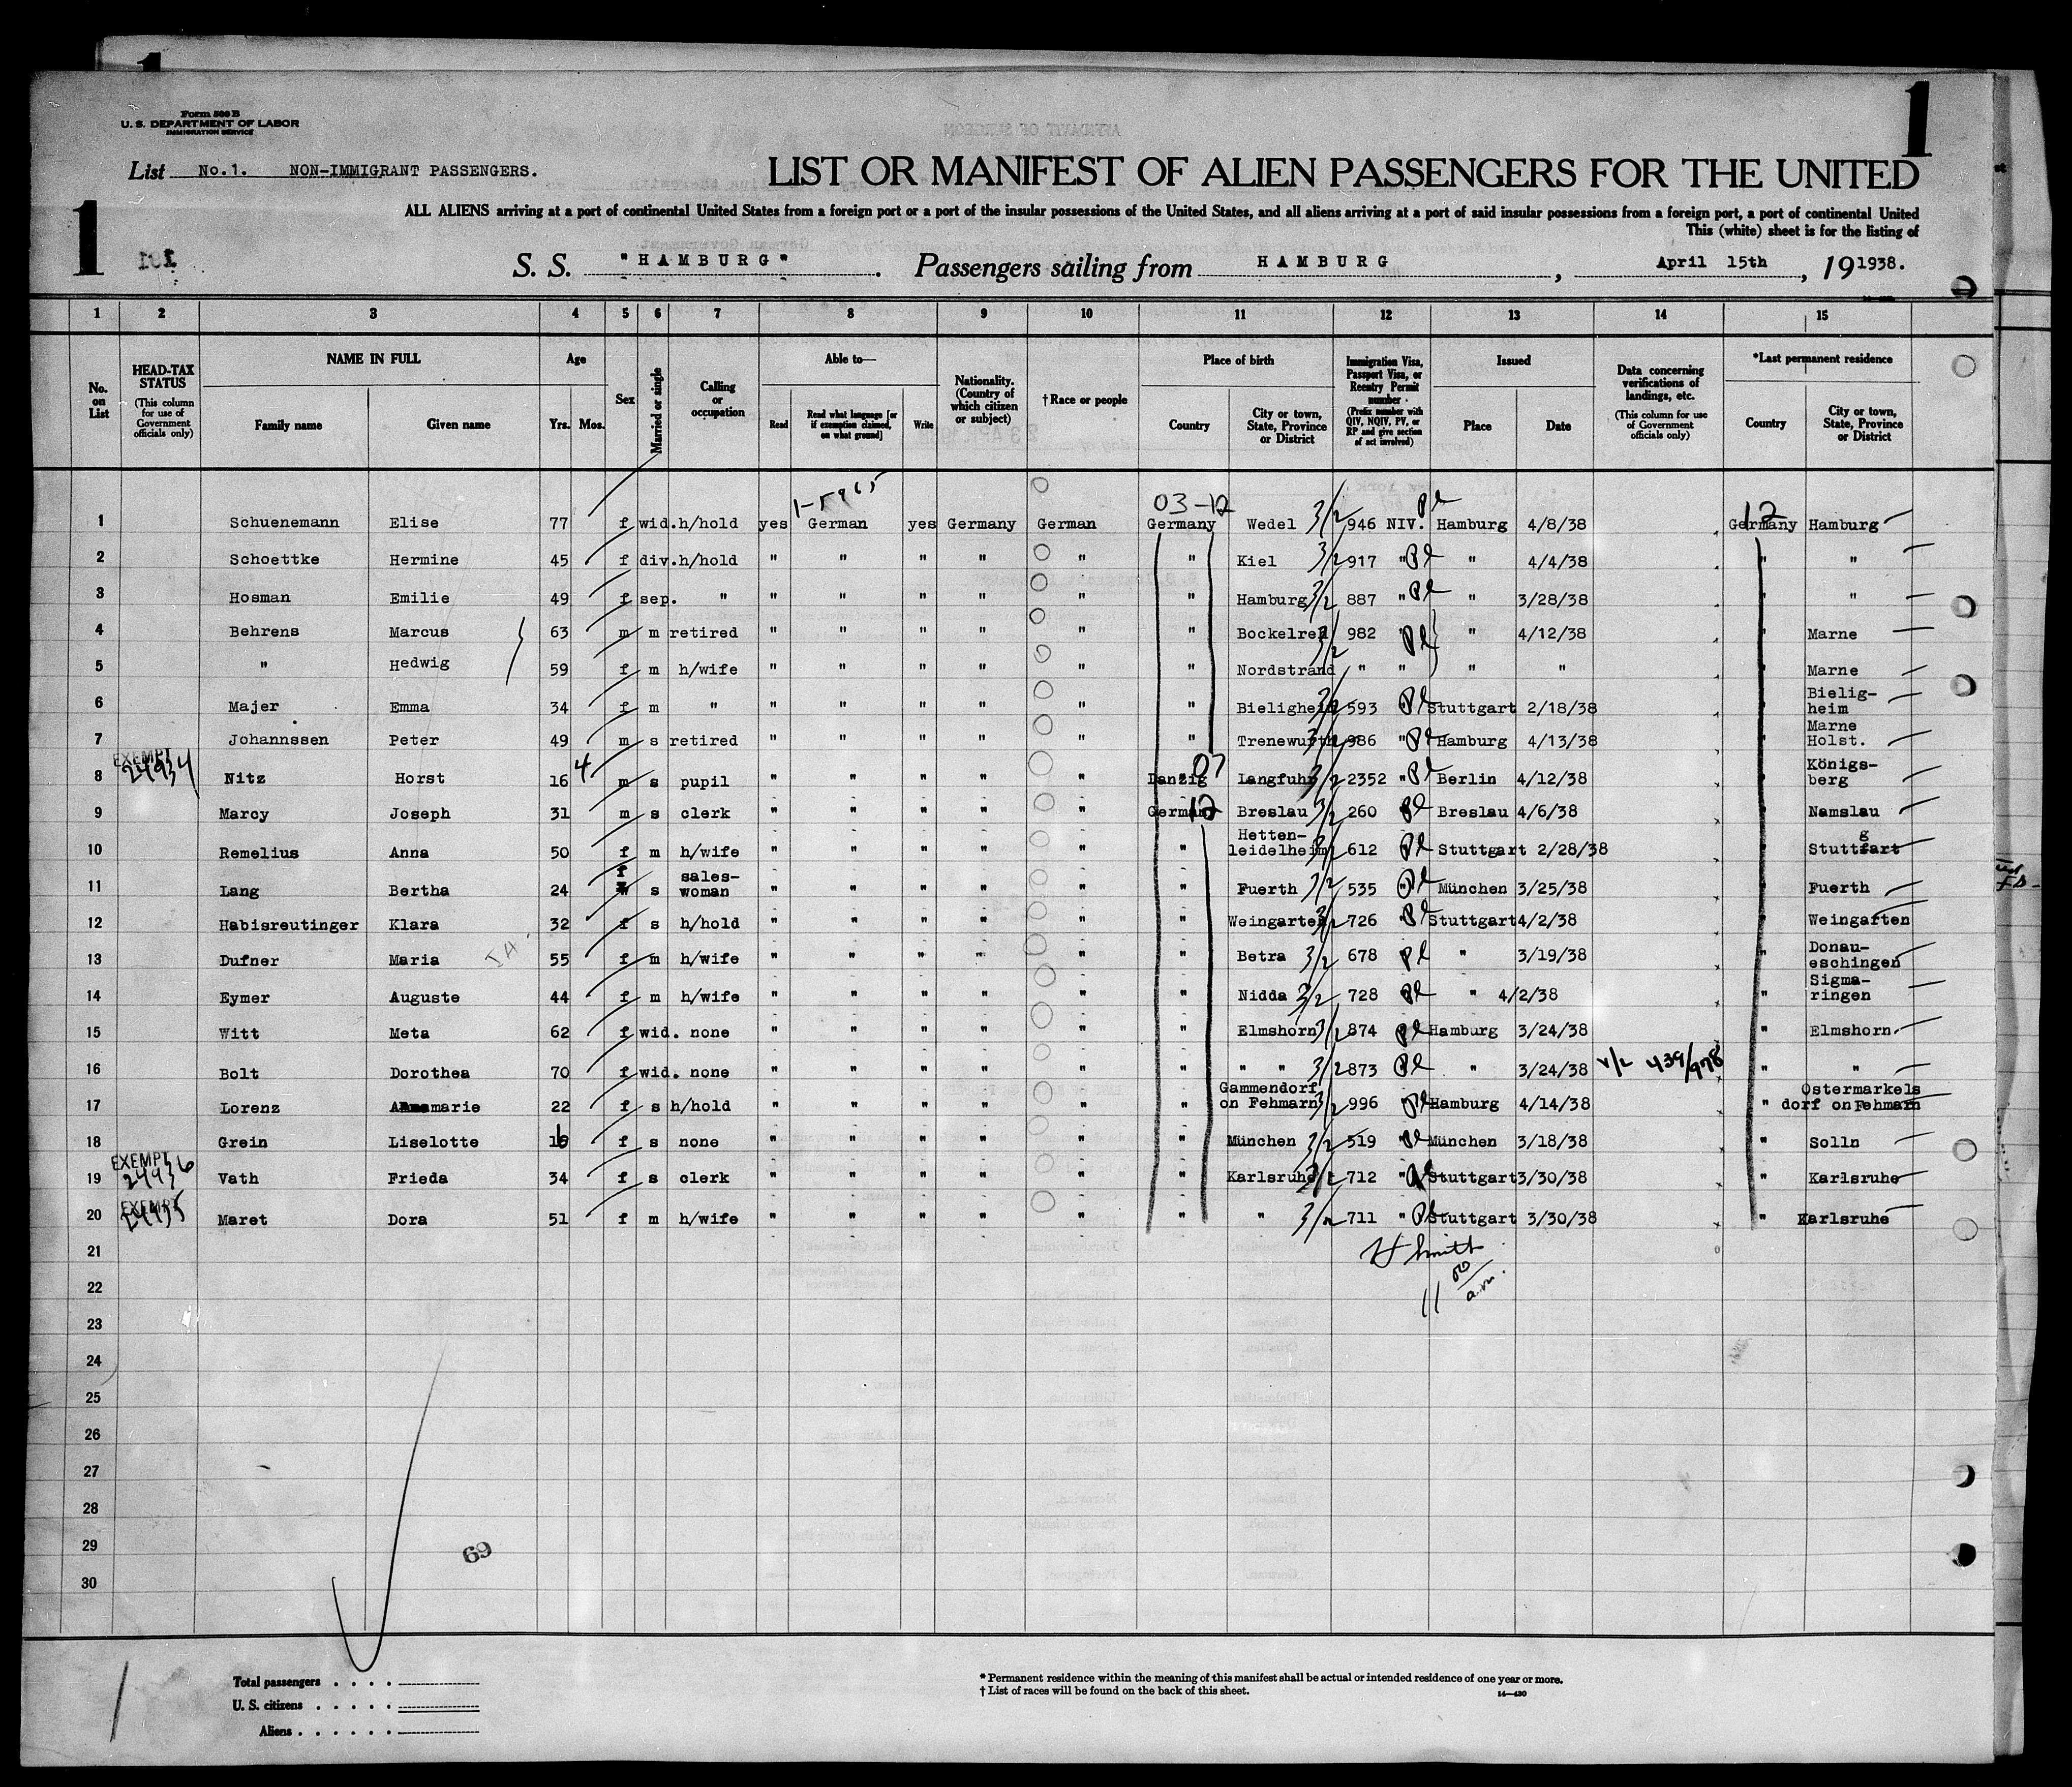 1
1
Form 500 B
U. S. DEPARTMENT OF LABOR
IMMIGRATION SERVICE
List No.1. NON-IMMIGRANT PASSENGERS.
LIST OR MANIFEST OF ALIEN PASSENGERS FOR THE UNITED
ALL ALIENS arriving at a port of continental United States from a foreign port or a port of the insular possessions of the United States, and all aliens arriving at a port of said insular possessions from a foreign port, a port of continental United
This (white) sheet is for the listing of
1
S. S. "HAMBURG". Passengers sailing from HAMBURG, April 15th, 19 1938.
1 2 3 4 5 6 7 8 9 10 11 12 13 14 15
No. on List
HEAD-TAX STATUS (This column for use of Government officials only)
NAME IN FULL Family name Given name
Age Yrs. Mos.
Sex
Married or single
Calling or occupation
Able to— Read Read what language [or if exemption claimed, on what ground] Write
Nationality. (Country of which citizen or subject)
†Race or people
Place of birth Country City or town, State, Province or District
Immigration Visa, Passport Visa, or Reentry Permit number (Prefix number with QIV, NQIV, PV, or RP and give section of act involved)
Issued Place Date
Data concerning verifications of landings, etc. (This column for use of Government officials only)
*Last permanent residence Country City or town, State, Province or District
03-12
1 Schuenemann Elise 77 f wid. h/hold yes German yes Germany German Germany Wedel 3/2 946 NIV. Hamburg 4/8/38 12 Germany Hamburg
2 Schoettke Hermine 45 f div. h/hold " " " " " " Kiel 3/2 917 " " 4/4/38 " "
3 Hosman Emilie 49 f sep. " " " " " " " Hamburg 3/2 887 " " 3/28/38 " "
4 Behrens Marcus 63 m m retired " " " " " " 982 " " 4/12/38 " Marne
5 " Hedwig 59 f m h/wife " " " " " " Nordstrand " " " " " Marne
6 Majer Emma 34 f m " " " " " " " Bieligheim 593 Stuttgart 2/18/38 " Bielig-
heim
7 Johannssen Peter 49 m s retired " " " " " " Trenewurth 986 " Hamburg 4/13/38 " Marne
Holst.
EXEMPT
24934
8 Nitz Horst 16 4 m s pupil " " " " " Danzig 07 Langfuhr 3/2 2352 " Berlin 4/12/38 " Königs-
berg
9 Marcy Joseph 31 m s clerk " " " " " Germany 12 Breslau 3/2 260 Breslau 4/6/38 " Namslau
10 Remelius Anna 50 f m h/wife " " " " " " Hetten-
leidelheim 612 Stuttgart 2/28/38 " Stuttgart
11 Lang Bertha 24 f s sales-
woman " " " " " " Fuerth 3/2 535 " München 3/25/38 " Fuerth
12 Habisreutinger Klara 32 f s h/hold " " " " " " Weingarten 3/2 726 " Stuttgart 4/2/38 " Weingarten
13 Dufner Maria 55 f m h/wife " " " " " " Betra 3/2 678 " 3/19/38 " Donau-
eschingen
14 Eymer Auguste 44 f m h/wife " " " " " " Nidda 3/2 728 " 4/2/38 " Sigma-
ringen
15 Witt Meta 62 f wid. none " " " " " " Elmshorn 3/2 874 Hamburg 3/24/38 " Elmshorn.
16 Bolt Dorothea 70 f wid. none " " " " " " " " 3/2 873 " 3/24/38 V/L 439/978 " "
17 Lorenz Annamarie 22 f s h/hold " " " " " " Gammendorf
on Fehmarn 3/2 996 " Hamburg 4/14/38 " Ostermarkels
dorf on Fehmarn
18 Grein Liselotte 16 f s none " " " " " " München 3/2 519 " München 3/18/38 " Solln
EXEMPT
24936
19 Vath Frieda 34 f s clerk " " " " " " Karlsruhe 3/2 712 " Stuttgart 3/30/38 " Karlsruhe
EXEMPT
24935
20 Maret Dora 51 f m h/wife " " " " " " " 3/2 711 " Stuttgart 3/30/38 " Karlsruhe
21
H Smith
22
11 00 a.m.
23
24
25
26
27
28
29
69
30
Total passengers
U. S. citizens
Aliens
* Permanent residence within the meaning of this manifest shall be actual or intended residence of one year or more.
† List of races will be found on the back of this sheet.
14—430